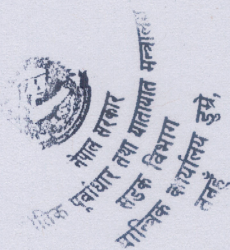 नेपाल सरकार
भौतिक पूर्वाधार तथा यातायात मन्त्रालय
सडक विभाग
यान्त्रिक कार्यालय डुम्रे,
तनहुँ